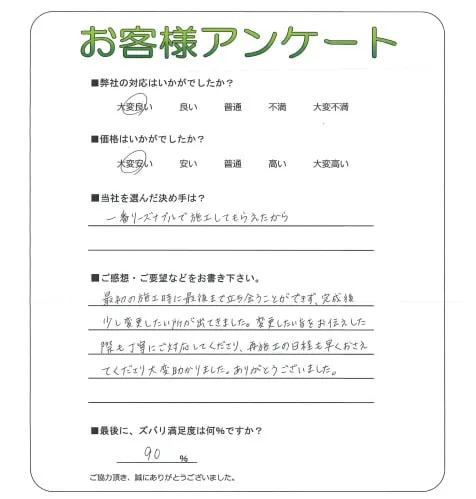 お客様アンケート
■弊社の対応はいかがでしたか？
大変良い 良い 普通 不満 大変不満
■価格はいかがでしたか？
大変安い 安い 普通 高い 大変高い
■当社を選んだ決め手は？
一番リーズナブルで施工してもらえたから
■ご感想・ご要望などをお書き下さい。
最初の施工時に最後まで立ち会うことができず、完成後
少し変更したい所が出てきました。変更したい旨をお伝えした
際も丁寧にご対応してくださり、再施工の日程も早くおさえ
てくださり大変助かりました。ありがとうございました。
■最後に、ズバリ満足度は何%ですか？
90 %
ご協力頂き、誠にありがとうございました。